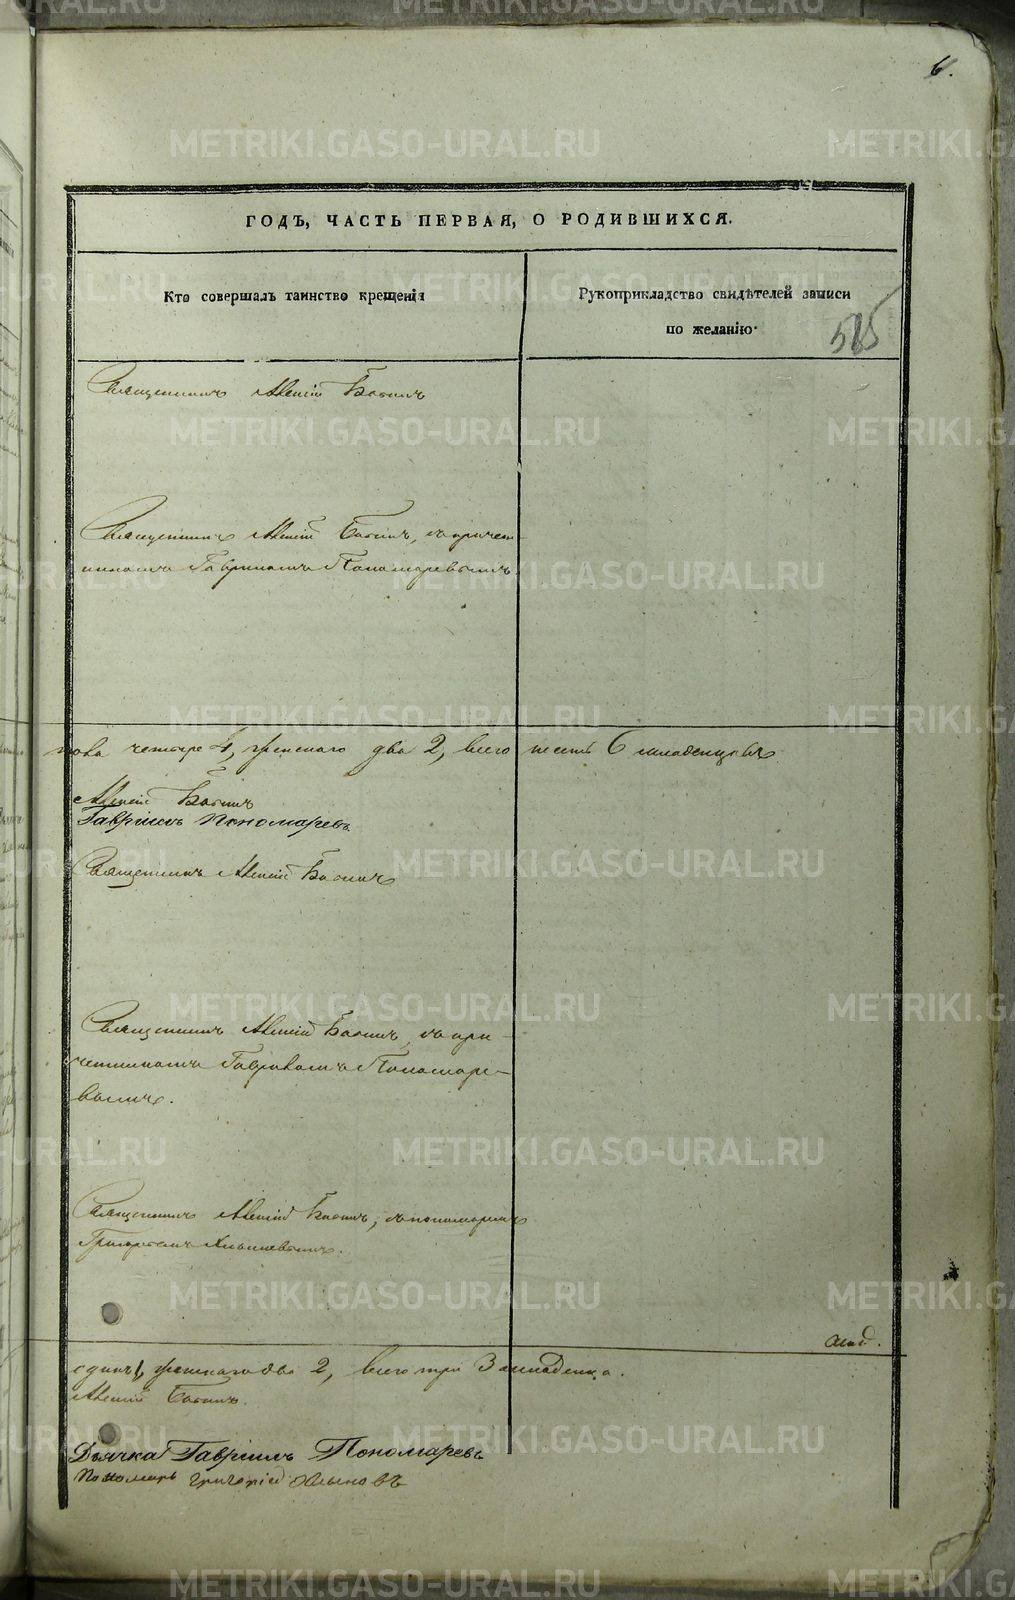 6.
ГОДЪ, ЧАСТЬ ПЕРВАЯ, О РОДИВШИХСЯ.
Кто совершалъ таинство крещенія
Рукоприкладство свидѣтелей записи
по желанію.
515
Священникъ Алексій
Священникъ Алексій съ причет
никомъ Гавриломъ Пономаревымъ.
пола четыре 4, женскаго два 2, всего шесть 6 младенцовъ
Алексій
Гавріилъ Пономаревъ
Священникъ Алексій
Священникъ Алексій съ при-
четникомъ Гавриломъ Пономаре-
вымъ.
Священникъ Алексій съ пономаремъ
Григорьемъ
одинъ 1, женскаго два 2, всего три 3 младенца.
Алексій
Дьячка Гавріилъ Пономаревъ
Пономарь Григорій
METRIKI.GASO-URAL.RU